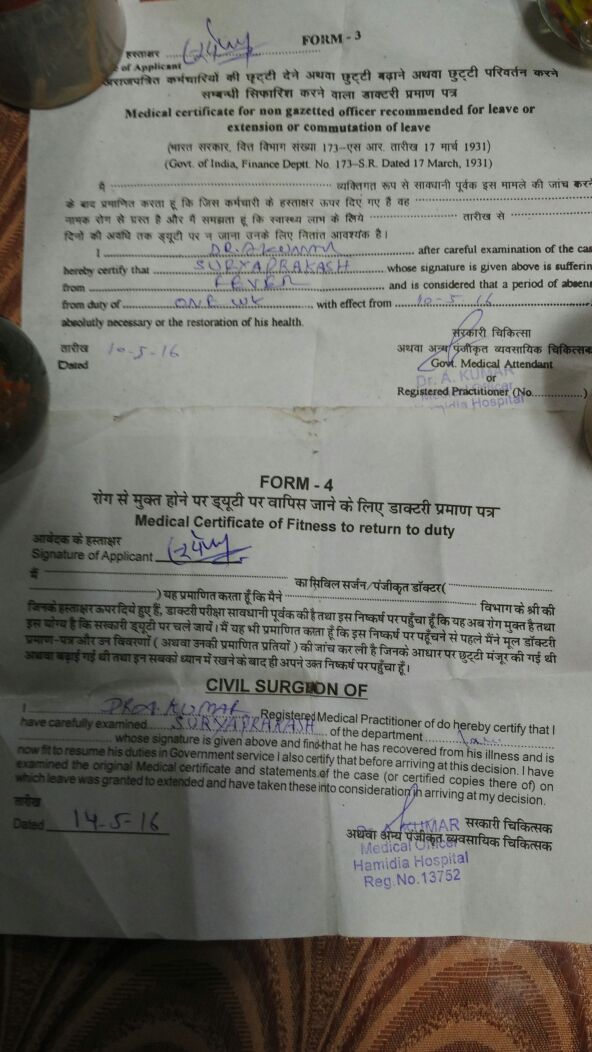 FORM - 3
हस्ताक्षर
e of Applicant
अराजपत्रित कर्मचारियों की छुट्टी देने अथवा छुट्टी बढ़ाने अथवा छुट्टी परिवर्तन करने
सम्बन्धी सिफारिश करने वाला डाक्टरी प्रमाण पत्र
Medical certificate for non gazetted officer recommended for leave or
extension or commutation of leave
(भारत सरकार, वित्त विभाग संख्या 173-एस आर. तारीख 17 मार्च 1931)
(Govt. of India, Finance Deptt. No. 173-S.R. Dated 17 March, 1931)
मैं ........ व्यक्तिगत रूप से सावधानी पूर्वक इस मामले की जांच करने
के बाद प्रमाणित करता हूं कि जिस कर्मचारी के हस्ताक्षर ऊपर दिए गए है वह ........
नामक रोग से ग्रस्त है और मैं समझता हूं कि स्वास्थ्य लाभ के लिये ........ तारीख से ........
दिनों की अवधि तक ड्यूटी पर न जाना उनके लिए नितांत आवश्यक है।
I DR. A KUMAR after careful examination of the cas
hereby certify that SURYAPRAKASH whose signature is given above is sufferin
from FEVER and is considered that a period of absen
from duty of ONE WK with effect from 10-5-16
absolutely necessary or the restoration of his health.
सरकारी चिकित्सा
तारीख 10-5-16 अथवा अन्य पंजीकृत व्यवसायिक चिकित्सक
Dated Govt. Medical Attendant
Dr. A. KUMAR
or
Medical Officer
Registered Practitioner (No............)
Hamidia Hospital
FORM - 4
रोग से मुक्त होने पर ड्यूटी पर वापिस जाने के लिए डाक्टरी प्रमाण पत्र
Medical Certificate of Fitness to return to duty
आवेदक के हस्ताक्षर
Signature of Applicant
मैं ........ का सिविल सर्जन/पंजीकृत डॉक्टर(........
........) यह प्रमाणित करता हूँ कि मैंने ........ विभाग के श्री की
जिनके हस्ताक्षर ऊपर दिये हुए हैं, डाक्टरी परीक्षा सावधानी पूर्वक की है तथा इस निष्कर्ष पर पहुँचा हूँ कि यह अब रोग मुक्त है तथा
इस योग्य है कि सरकारी ड्यूटी पर चले जायें। मैं यह भी प्रमाणित करता हूँ कि इस निष्कर्ष पर पहुँचने से पहले मैंने मूल डॉक्टरी
प्रमाण-पत्र और उन विवरणों (अथवा उनकी प्रमाणित प्रतियों) की जांच कर ली है जिनके आधार पर छुट्टी मंजूर की गई थी
अथवा बढ़ाई गई थी तथा इन सबको ध्यान में रखने के बाद ही अपने उक्त निष्कर्ष पर पहुँचा हूँ।
CIVIL SURGEON OF
I DR A KUMAR Registered Medical Practitioner of do hereby certify that I
have carefully examined SURYAPRAKASH of the department
whose signature is given above and find that he has recovered from his illness and is
now fit to resume his duties in Government service I also certify that before arriving at this decision. I have
examined the original Medical certificate and statements of the case (or certified copies there of) on
which leave was granted to extended and have taken these into consideration in arriving at my decision.
तारीख
Dated 14-5-16
सरकारी चिकित्सक
KUMAR
अथवा अन्य पंजीकृत व्यवसायिक चिकित्सक
Medical Officer
Hamidia Hospital
Reg.No.13752